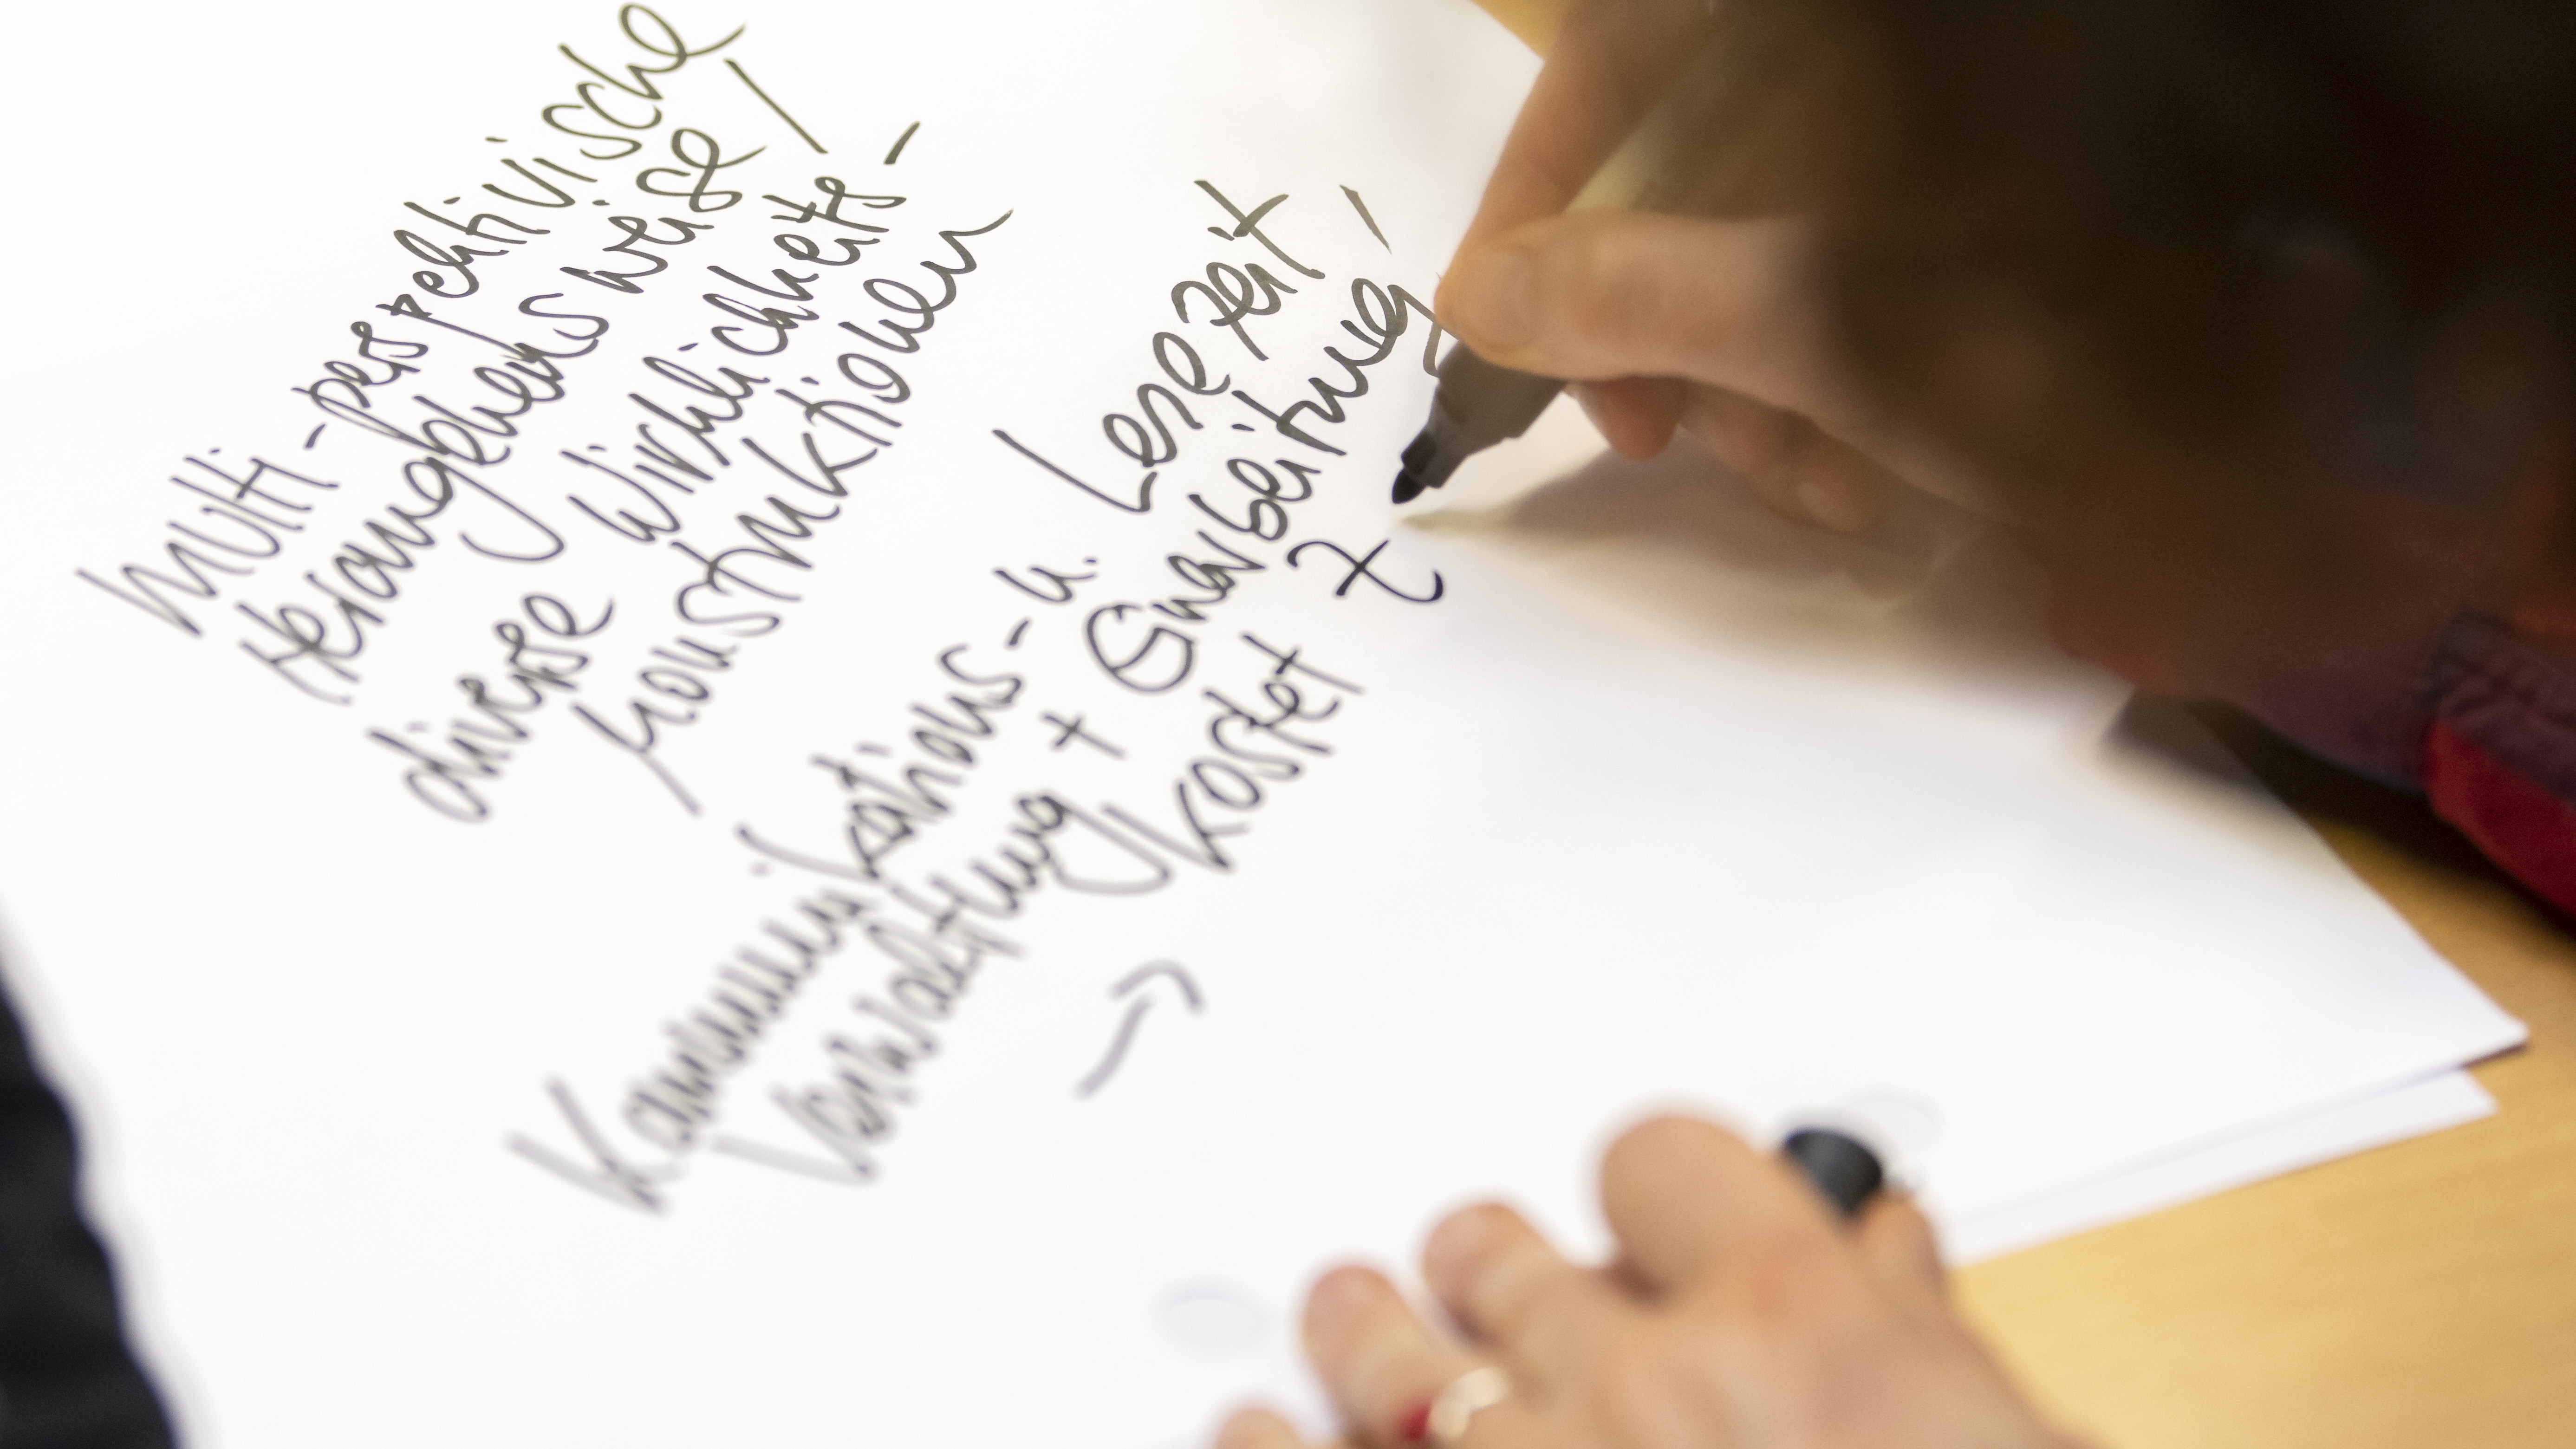 Multi-perspektivische
Herangehensweise /
diverse Wirklichkeits-
konstruktionen
Kommunikations- u. Lesezeit /
Verwaltung + Einarbeitung
→ kostet Z